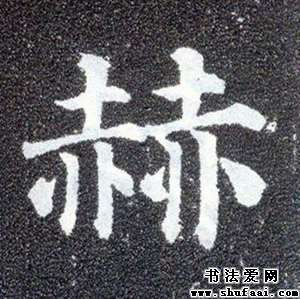 赫
书法爱网
www.shufaai.com